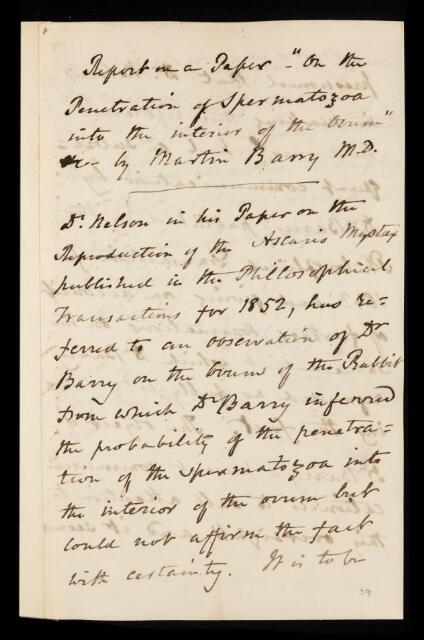 Report on a Paper "On the
Penetration of Spermatozoa
into the interior of the Ovum"
&c by Martin Barry M.D.
Dr. Nelson in his Paper on the
Reproduction of the Ascaris Mystax
published in the Philosophical
Transactions for 1852, has re-
ferred to an observation of Dr
Barry on the Ovum of the Rabbit
from which Dr Barry inferred
the probability of the penetra-
tion of the spermatozoa into
the interior of the ovum but
could not affirm the fact
with certainty. It is to be